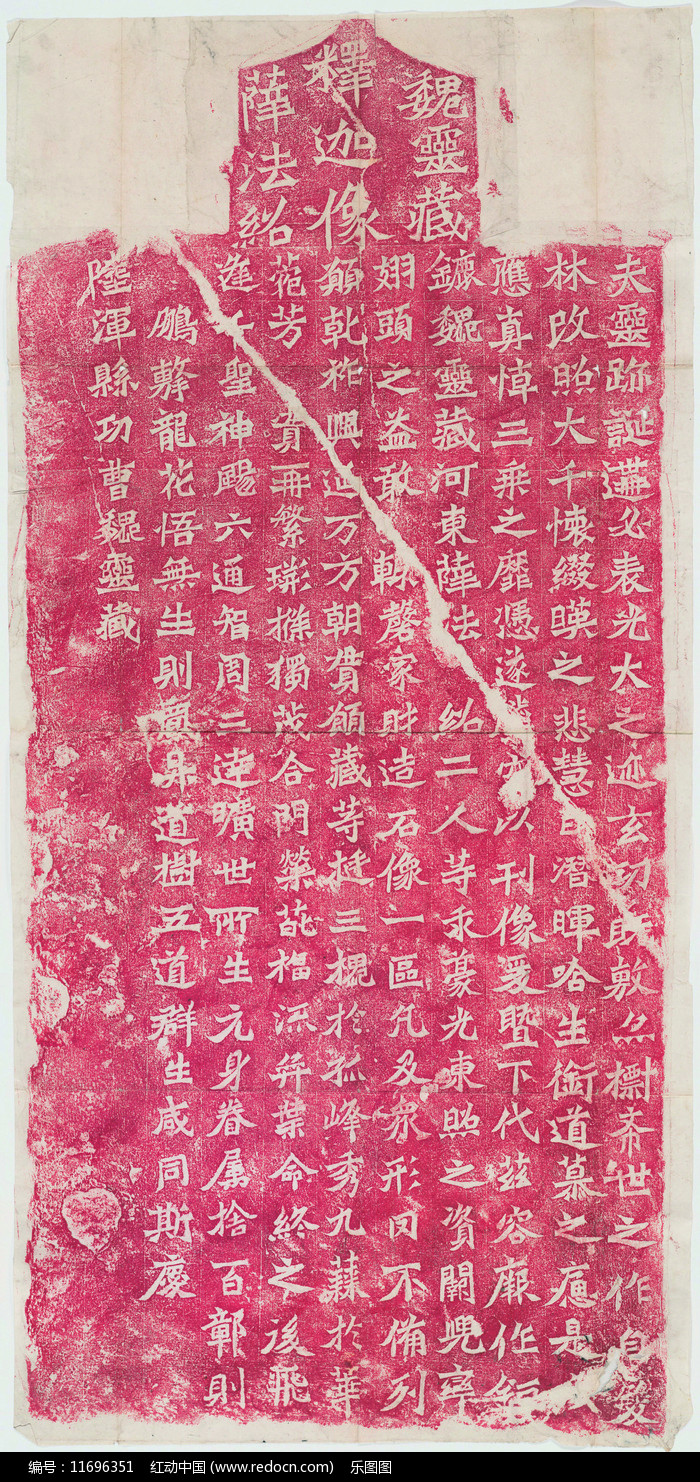 魏靈藏
釋迦像
薛法紹
夫靈跡誕遘必表光大之迹玄功既敷亦標希世之作自雙
林改照大千懷綴暎之悲慧日潛暉唅生銜道慕之痛是以
應真悼三乘之靡憑遂騰空以刊像爰暨下代茲容厥作鉅
鏕魏靈藏河東薛法紹二人等求豪光東照之資闕兜率
翅頭之益敢輒磬家財造石像一區凡及衆形罔不備列
願乾祚興延万方朝貫願藏等挺三槐於孤峰秀九蕀於華
菀芳實再繁荊條獨茂合門榮葩福流弈葉命終之後飛
逢千聖神颺六通智周三達曠世所生元身眷屬捨百鄣則
鵬擊龍花悟無生則昇道樹五道群生咸同斯慶
陸渾縣功曹魏靈藏
编号：11696351 红动中国 (www.redocn.com) 乐图图